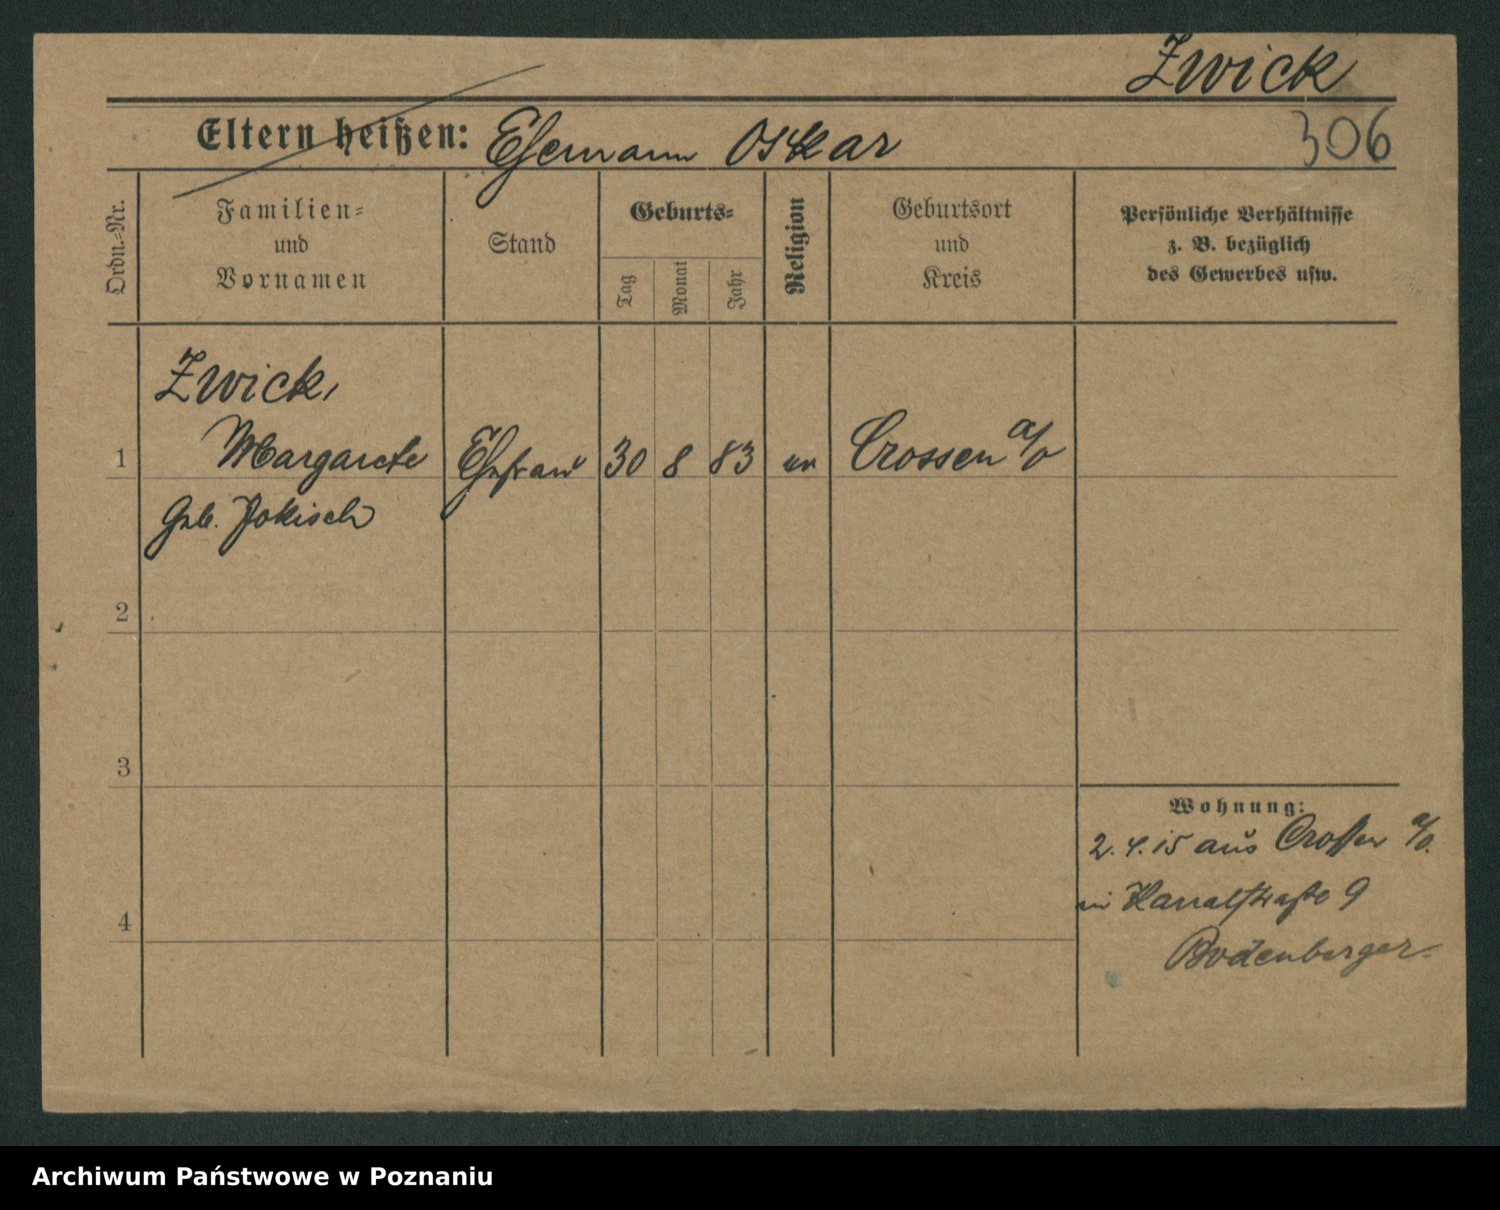 Zwick
306
Eltern heißen: Ehemann Oskar
Ordn.-Nr.
Familien-
und
Vornamen
Stand
Geburts-
Tag
Monat
Jahr
Religion
Geburtsort
und
Kreis
Persönliche Verhältnisse
z. B. bezüglich
des Gewerbes usw.
Zwick,
1 Margarete Ehefrau 30 8 83 ev Crossen a/o
Geb. Jokisch
2
3
4
Wohnung:
2.4.15 aus Crossen a/o.
in Kanalstraße 9
Bodenberger
Archiwum Państwowe w Poznaniu